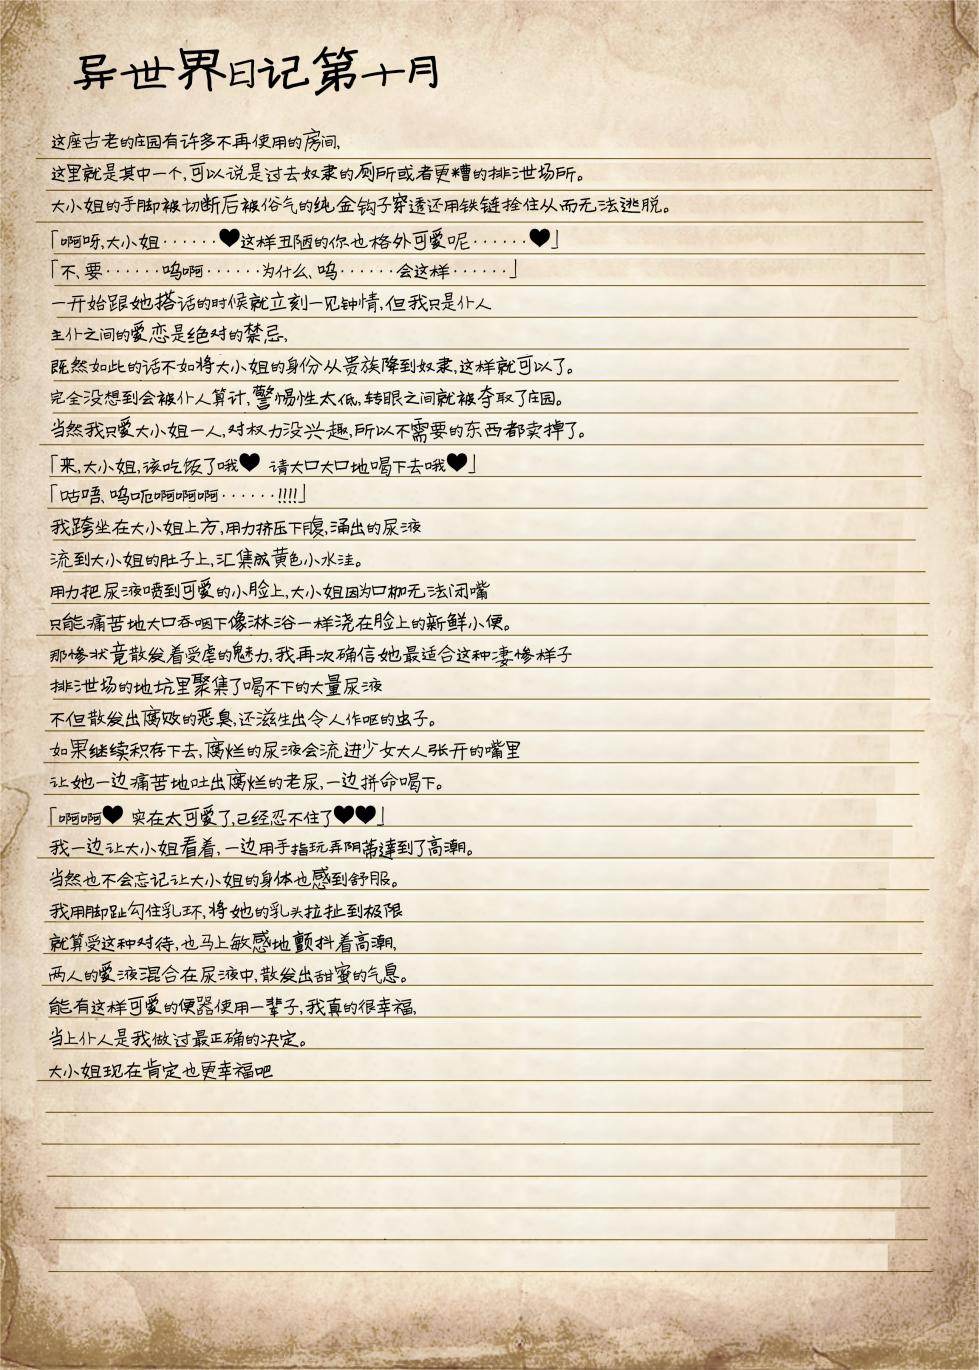 异世界日记第十月
这座古老的庄园有许多不再使用的房间,
这里就是其中一个,可以说是过去奴隶的厕所或者更糟的排泄场所。
大小姐的手脚被切断后被俗气的纯金钩子穿透还用铁链拴住从而无法逃脱。
「啊呀,大小姐······♥这样丑陋的你也格外可爱呢······♥」
「不、要······呜啊······为什么、呜······会这样······」
一开始跟她搭话的时候就立刻一见钟情,但我只是仆人
主仆之间的爱恋是绝对的禁忌,
既然如此的话不如将大小姐的身份从贵族降到奴隶,这样就可以了。
完全没想到会被仆人算计,警惕性太低,转眼之间就被夺取了庄园。
当然我只爱大小姐一人,对权力没兴趣,所以不需要的东西都卖掉了。
「来,大小姐,该吃饭了哦♥ 请大口大口地喝下去哦♥」
「咕唔、呜呃啊啊啊······!!!!」
我跨坐在大小姐上方,用力挤压下腹,涌出的尿液
流到大小姐的肚子上,汇集成黄色小水洼。
用力把尿液喷到可爱的小脸上,大小姐因为口枷无法闭嘴
只能痛苦地大口吞咽下像淋浴一样浇在脸上的新鲜小便。
那惨状竟散发着受虐的魅力,我再次确信她最适合这种凄惨样子
排泄场的地坑里聚集了喝不下的大量尿液
不但散发出腐败的恶臭,还滋生出令人作呕的虫子。
如果继续积存下去,腐烂的尿液会流进少女大人张开的嘴里
让她一边痛苦地吐出腐烂的老尿,一边拼命喝下。
「啊啊♥ 实在太可爱了,已经忍不住了♥♥」
我一边让大小姐看着,一边用手指玩弄阴蒂達到了高潮。
当然也不会忘记让大小姐的身体也感到舒服。
我用脚趾勾住乳环,将她的乳头拉扯到极限
就算受这种对待,也马上敏感地颤抖着高潮,
两人的爱液混合在尿液中,散发出甜蜜的气息。
能有这样可爱的便器使用一辈子,我真的很幸福,
当上仆人是我做过最正确的决定。
大小姐现在肯定也更幸福吧